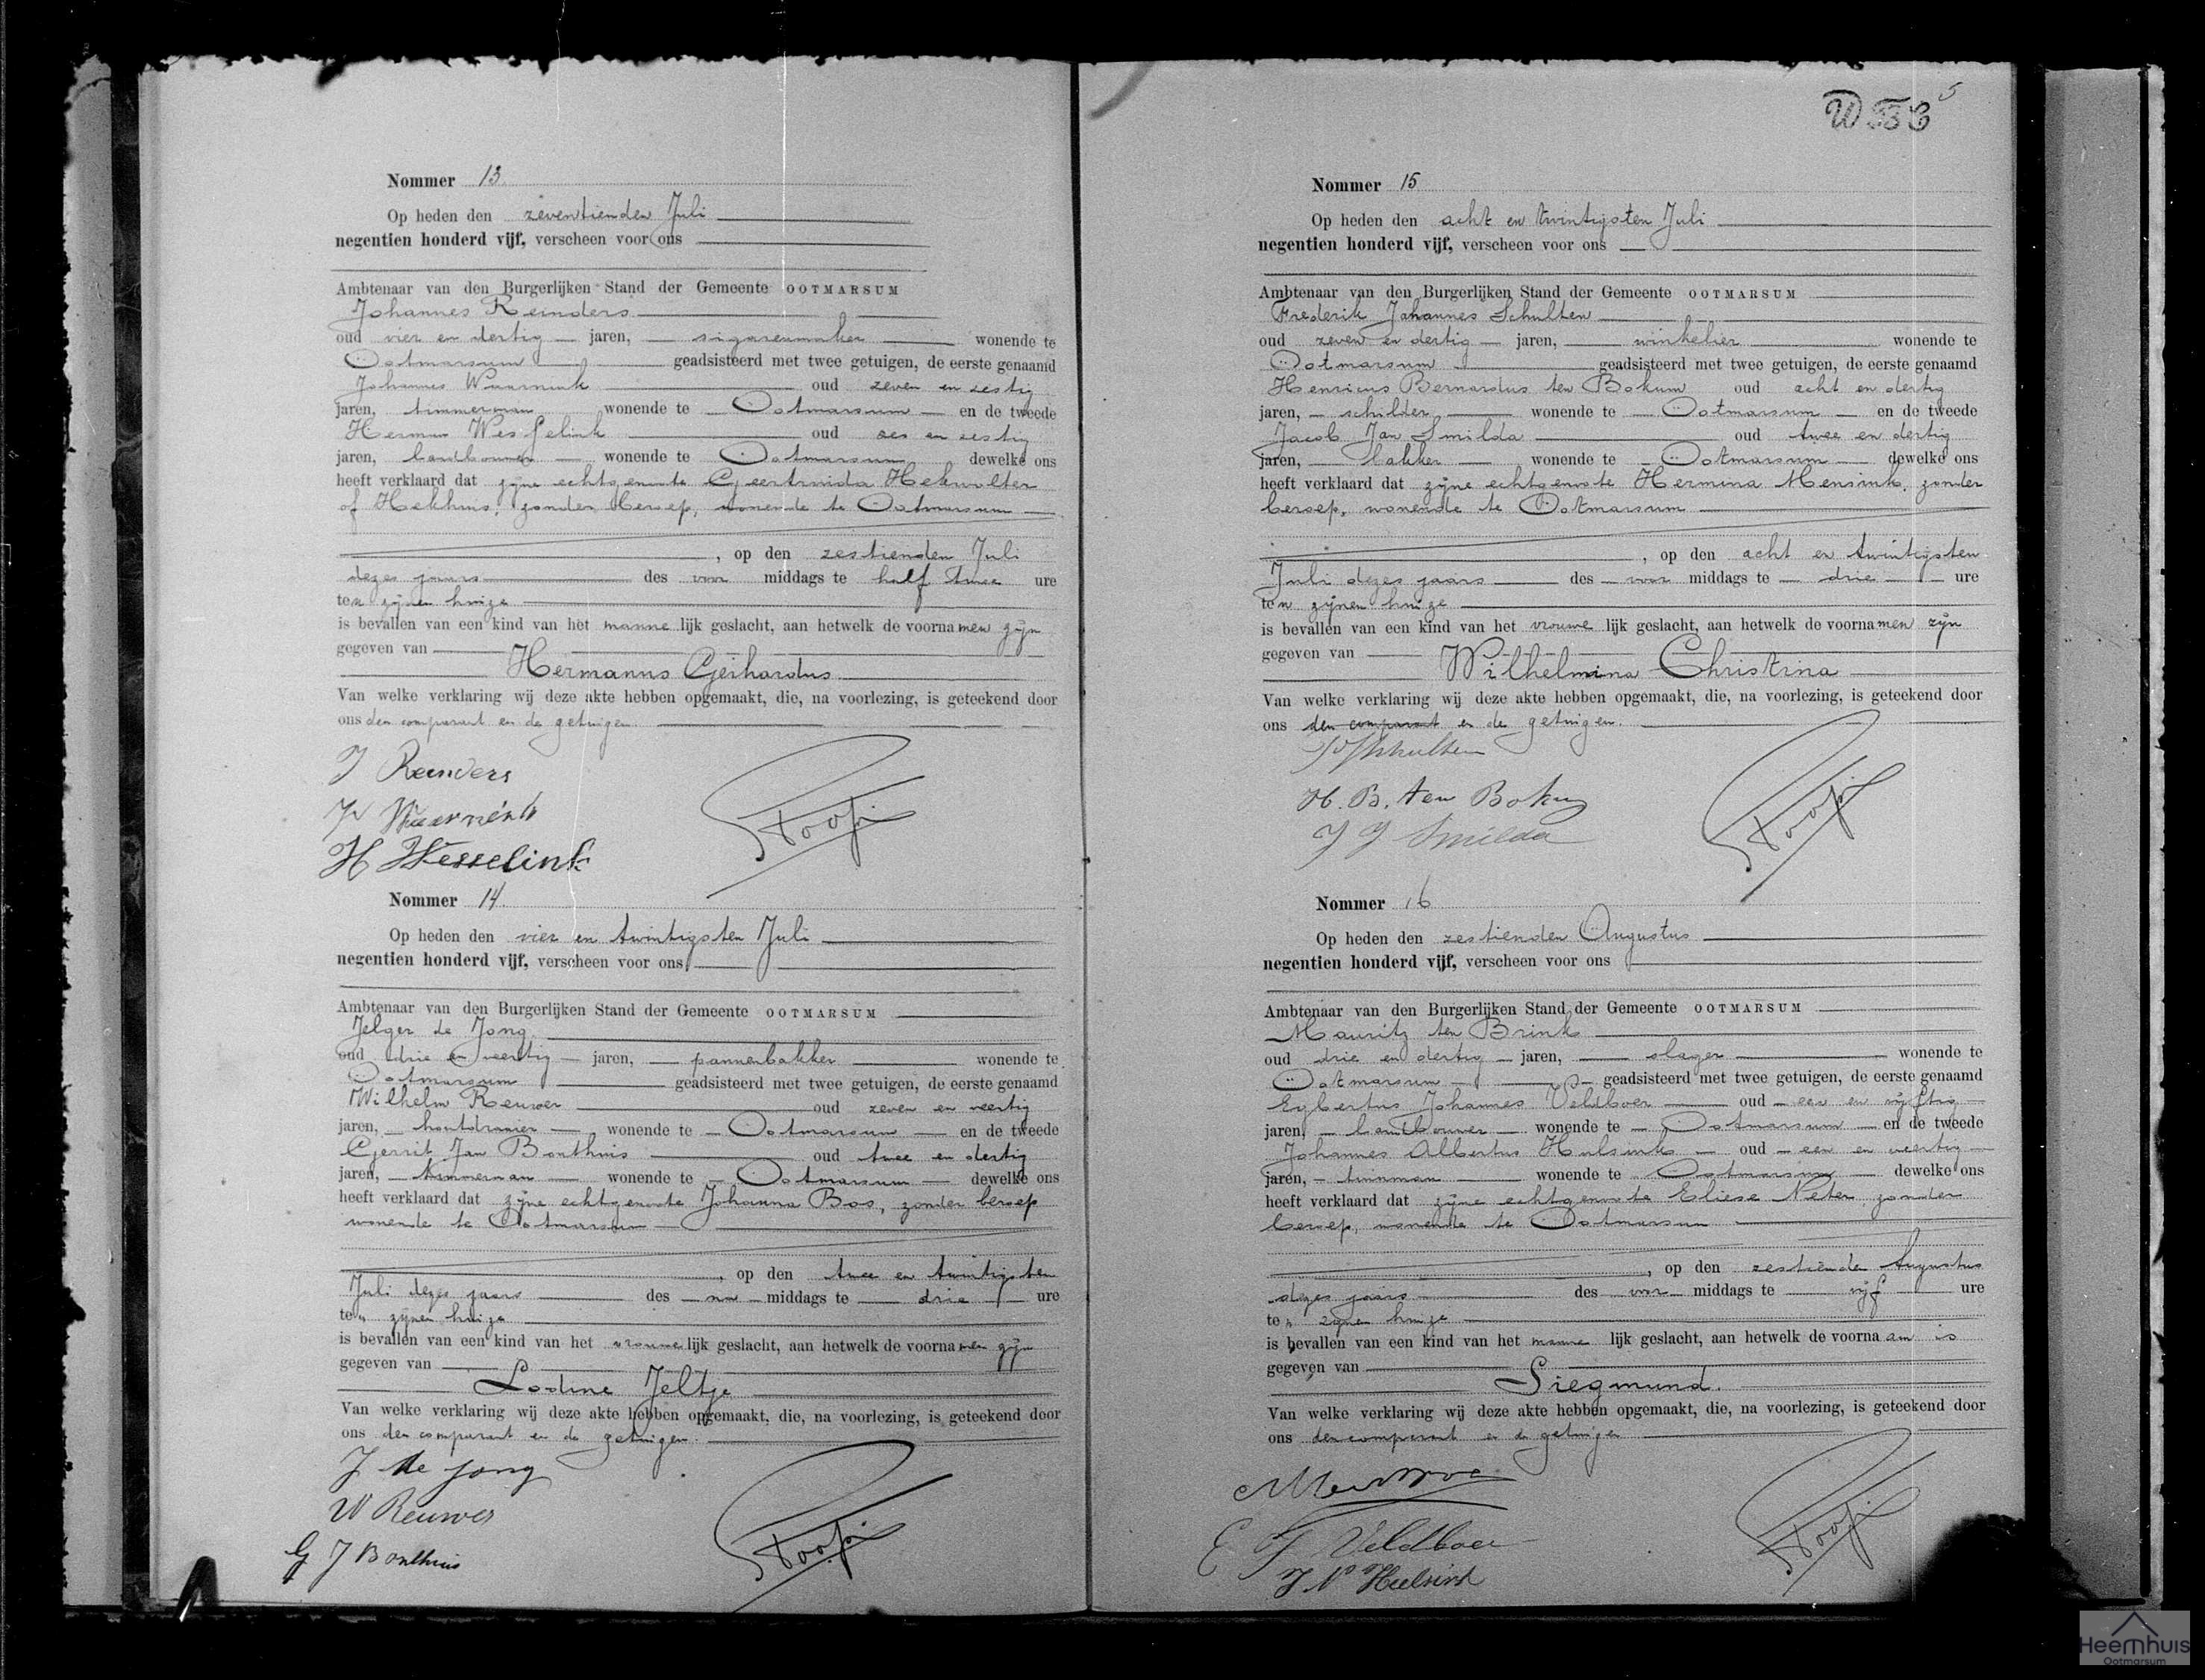 Nommer 13.
Op heden den zeventienden Juli
negentien honderd vijf, verscheen voor ons
Ambtenaar van den Burgerlijken Stand der Gemeente OOTMARSUM
Johannes Reinders
oud vier en dertig jaren, sigarenmaker wonende te
Ootmarsum geadsisteerd met twee getuigen, de eerste genaamd
Johannes Waarnink oud zeven en zestig
jaren, timmerman wonende te Ootmarsum en de tweede
Hermus Wesselink oud zes en zestig
jaren, landbouwer wonende te Ootmarsum dewelke ons
heeft verklaard dat zijne echtgenoote Geertruida Hekwolter
of Hekhuis, zonder beroep, wonende te Ootmarsum
, op den zestienden Juli
dezes jaars des voor middags te half twee ure
ten zijnen huize
is bevallen van een kind van het manne lijk geslacht, aan hetwelk de voornamen zijn
gegeven van
Hermanus Gerhardus
Van welke verklaring wij deze akte hebben opgemaakt, die, na voorlezing, is geteekend door
ons den comparant en de getuigen.
J Reinders
J Waarnink
H Wesselink
Nommer 14.
Op heden den vier en twintigsten Juli
negentien honderd vijf, verscheen voor ons
Ambtenaar van den Burgerlijken Stand der Gemeente OOTMARSUM
Jelger de Jong
oud drie en veertig jaren, pannenbakker wonende te
Ootmarsum geadsisteerd met twee getuigen, de eerste genaamd
Wilhelm Reuwer oud zeven en veertig
jaren, houtdraaier wonende te Ootmarsum en de tweede
Gerrit Jan Bonthuis oud twee en dertig
jaren, timmerman wonende te Ootmarsum dewelke ons
heeft verklaard dat zijne echtgenoote Johanna Bos, zonder beroep
wonende te Ootmarsum
, op den twee en twintigsten
Juli dezes jaars des na middags te drie ure
ten zijnen huize
is bevallen van een kind van het vrouwe lijk geslacht, aan hetwelk de voornamen zijn
gegeven van
Lodine Jeltje
Van welke verklaring wij deze akte hebben opgemaakt, die, na voorlezing, is geteekend door
ons den comparant en de getuigen.
J de Jong
W Reuwer
G J Bonthuis
5
Nommer 15
Op heden den acht en twintigsten Juli
negentien honderd vijf, verscheen voor ons
Ambtenaar van den Burgerlijken Stand der Gemeente OOTMARSUM
Frederik Johannes Schulten
oud zeven en dertig jaren, winkelier wonende te
Ootmarsum geadsisteerd met twee getuigen, de eerste genaamd
Henricus Bernardus ten Bokum oud acht en dertig
jaren, schilder wonende te Ootmarsum en de tweede
Jacob Jan Smilda oud twee en dertig
jaren, bakker wonende te Ootmarsum dewelke ons
heeft verklaard dat zijne echtgenoote Hermina Mensink, zonder
beroep, wonende te Ootmarsum
, op den acht en twintigsten
Juli dezes jaars des voor middags te drie ure
ten zijnen huize
is bevallen van een kind van het vrouwe lijk geslacht, aan hetwelk de voornamen zijn
gegeven van
Wilhelmina Christina
Van welke verklaring wij deze akte hebben opgemaakt, die, na voorlezing, is geteekend door
ons den comparant en de getuigen.
Schulten
H. B. ten Bokum
J J Smilda
Nommer 16
Op heden den zestienden Augustus
negentien honderd vijf, verscheen voor ons
Ambtenaar van den Burgerlijken Stand der Gemeente OOTMARSUM
Mauritz ten Brink
oud drie en dertig jaren, slager wonende te
Ootmarsum geadsisteerd met twee getuigen, de eerste genaamd
Egbertus Johannes Veldboer oud een en vijftig
jaren, landbouwer wonende te Ootmarsum en de tweede
Johannes Albertus Hulsink oud een en veertig
jaren, tuinman wonende te Ootmarsum dewelke ons
heeft verklaard dat zijne echtgenoote Eliese Neter, zonder
beroep, wonende te Ootmarsum
, op den zestienden Augustus
dezes jaars des voor middags te vijf ure
ten zijnen huize
is bevallen van een kind van het manne lijk geslacht, aan hetwelk de voornaam is
gegeven van
Siegmund.
Van welke verklaring wij deze akte hebben opgemaakt, die, na voorlezing, is geteekend door
ons den comparant en de getuigen
E J Veldboer
J A Hulsink
Heemhuis
Ootmarsum